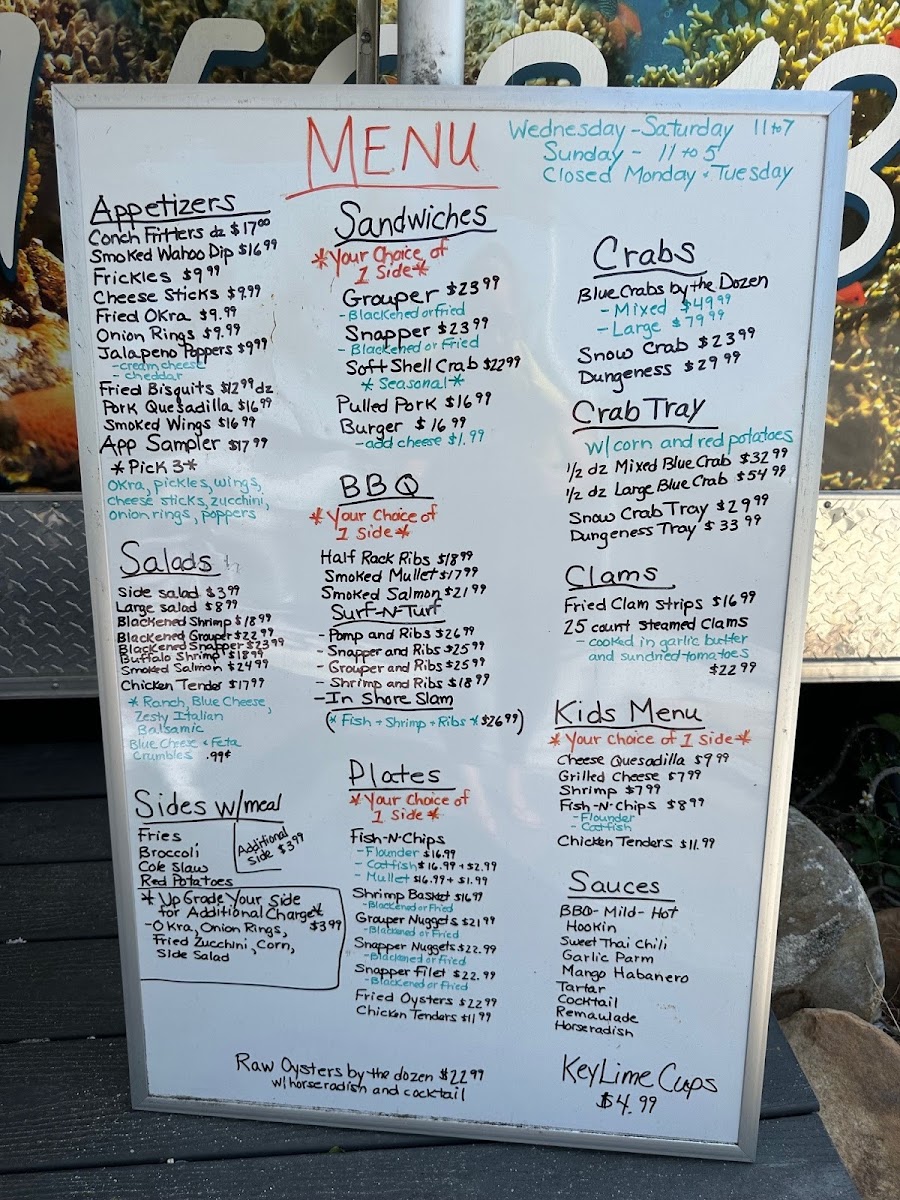 MENU
Wednesday - Saturday 11 to 7
Sunday - 11 to 5
Closed Monday & Tuesday
Appetizers
Conch Fritters dz $17.00
Smoked Wahoo Dip $16.99
Frickles $9.99
Cheese Sticks $9.99
Fried Okra $9.99
Onion Rings $9.99
Jalapeno Poppers $9.99
- cream cheese
- cheddar
Fried Bisquits $12.99 dz
Pork Quesadilla $16.99
Smoked Wings $16.99
App Sampler $17.99
*Pick 3*
Okra, pickles, wings,
cheese sticks, zucchini,
onion rings, poppers
Salads
Side salad $3.99
Large salad $8.99
Blackened Shrimp $18.99
Blackened Grouper $22.99
Blackened Snapper $23.99
Buffalo Shrimp $18.99
Smoked Salmon $24.99
Chicken Tender $17.99
* Ranch, Blue Cheese,
Zesty Italian
Balsamic
Blue Cheese & Feta
Crumbles .99¢
Sides w/meal
Fries
Broccoli
Cole Slaw
Red Potatoes
Additional
Side $3.99
* Up Grade Your Side
for Additional Charge*
- Okra, Onion Rings, $3.99
Fried Zucchini, Corn,
Side Salad
Sandwiches
*Your Choice of
1 Side*
Grouper $23.99
- Blackened or Fried
Snapper $23.99
- Blackened or Fried
Soft Shell Crab $22.99
* Seasonal *
Pulled Pork $16.99
Burger $16.99
- add cheese $1.99
BBQ
*Your Choice of
1 Side*
Half Rack Ribs $18.99
Smoked Mullet $17.99
Smoked Salmon $21.99
Surf-N-Turf
- Pomp and Ribs $26.99
- Snapper and Ribs $25.99
- Grouper and Ribs $25.99
- Shrimp and Ribs $18.99
- In Shore Slam
(* Fish + Shrimp + Ribs * $26.99)
Plates
*Your Choice of
1 Side*
Fish-N-Chips
- Flounder $16.99
- Catfish $16.99 + $2.99
- Mullet $16.99 + $1.99
Shrimp Basket $16.99
- Blackened or Fried
Grouper Nuggets $21.99
- Blackened or Fried
Snapper Nuggets $22.99
- Blackened or Fried
Snapper Filet $22.99
- Blackened or Fried
Fried Oysters $22.99
Chicken Tenders $11.99
Raw Oysters by the dozen $22.99
w/ horseradish and cocktail
Crabs
Blue Crabs by the Dozen
- Mixed $49.99
- Large $79.99
Snow Crab $23.99
Dungeness $29.99
Crab Tray
w/corn and red potatoes
1/2 dz Mixed Blue Crab $32.99
1/2 dz Large Blue Crab $54.99
Snow Crab Tray $29.99
Dungeness Tray $33.99
Clams
Fried Clam strips $16.99
25 count Steamed Clams
- cooked in garlic butter
and sundried tomatoes
$22.99
Kids Menu
*Your Choice of 1 Side*
Cheese Quesadilla $9.99
Grilled Cheese $7.99
Shrimp $7.99
Fish-N-Chips $8.99
- Flounder
- Catfish
Chicken Tenders $11.99
Sauces
BBQ - Mild - Hot
Hookin
Sweet Thai Chili
Garlic Parm
Mango Habanero
Tartar
Cocktail
Remaulade
Horseradish
Key Lime Cups
$4.99